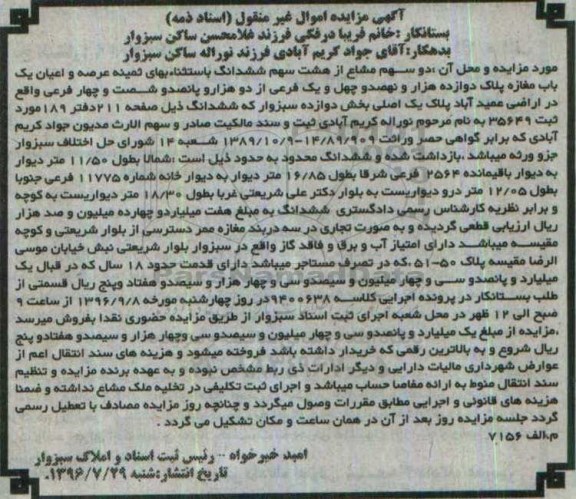 آگهی مزایده اموال غیر منقول (اسناد ذمه)
بستانکار :خانم فریبا درفکی فرزند غلامحسن ساکن سبزوار
بدهکار:آقای جواد کریم آبادی فرزند نوراله ساکن سبزوار
مورد مزایده و محل آن :دو سهم مشاع از هشت سهم ششدانگ باستثناءبهای ثمنیه عرصه و اعیان یک
باب مغازه پلاک دوازده هزار و نهصدو چهل و یک فرعی از دو هزارو پانصدو شصت و چهار فرعی واقع
در اراضی عمید آباد پلاک یک اصلی بخش دوازده سبزوار که ششدانگ ذیل صفحه ۲۱۱دفتر ۱۸۹مورد
ثبت ۳۵۶۴۹ به نام مرحوم نوراله کریم آبادی ثبت و سند مالکیت صادر و سهم الارث مدیون جواد کریم
آبادی که برابر گواهی حصر وراثت ۱۴/۸۹/۹۰۹-۱۳۸۹/۱۰/۹ شعبه ۱۴ شورای حل اختلاف سبزوار
جزو ورثه میباشد .بازداشت شده و ششدانگ محدود به حدود ذیل است :شمالا بطول ۱۱/۵۰ متر دیوار
به دیوار باقیمانده ۲۵۶۴ فرعی شرقا بطول ۱۶/۸۵ متر دیوار به دیوار خانه شماره ۱۱۷۷۵ فرعی جنوبا
بطول ۱۲/۰۵ متر درو دیواریست به بلوار دکتر علی شریعتی غربا بطول ۱۸/۳۰ متر دیواریست به کوچه
و برابر نظریه کارشناس رسمی دادگستری ششدانگ به مبلغ هفت میلیاردو چهارده میلیون و صد هزار
ریال ارزیابی قطعی گردیده و به صورت تجاری در سه دربند مغازه ممر دسترسی از بلوار شریعتی و کوچه
مقیسه میباشد دارای امتیاز آب و برق و فاقد گاز واقع در سبزوار بلوار شریعتی نبش خیابان موسی
الرضا مقیسه پلاک ۵۰-۵۱ ،که در تصرف مستاجر میباشد دارای قدمت حدود ۱۸ سال که در قبال یک
میلیارد و پانصدو سی و چهار میلیون و سیصدو سی و چهار هزار و سیصدو هفتاد وپنج ریال قسمتی از
طلب بستانکار در پرونده اجرایی کلاسه ۹۴۰۰۶۳۸در روز چهارشنبه مورخه ۱۳۹۶/۹/۸ از ساعت ۹
صبح الی ۱۲ ظهر در محل شعبه اجرای ثبت اسناد سبزوار از طریق مزایده حضوری نقدا بفروش میرسد
.مزایده از مبلغ یک میلیارد و پانصدو سی و چهار میلیون و سیصدو سی وچهار هزار و سیصدو هفتادو پنج
ریال شروع و به بالاترین رقمی که خریدار داشته باشد فروخته میشود و هزینه های سند انتقال اعم از
عوارض شهرداری مالیات دارایی و دیگر ادارات ذی ربط مشخص نبوده و به عهده برنده مزایده و تنظیم
سند انتقال منوط به ارائه مفاصا حساب میباشد و اجرای ثبت تکلیفی در تخلیه ملک مشاع نداشته و ضمنا
هزینه های قانونی و اجرایی مطابق مقررات وصول میگردد و چنانچه روز مزایده مصادف با تعطیل رسمی
گردد جلسه مزایده روز بعد از آن در همان ساعت و مکان تشکیل می گردد .
م.الف ۷۱۵۶
امید خیرخواه -- رئیس ثبت اسناد و املاک سبزوار
تاریخ انتشار:شنبه ۱۳۹۶/۷/۲۹.